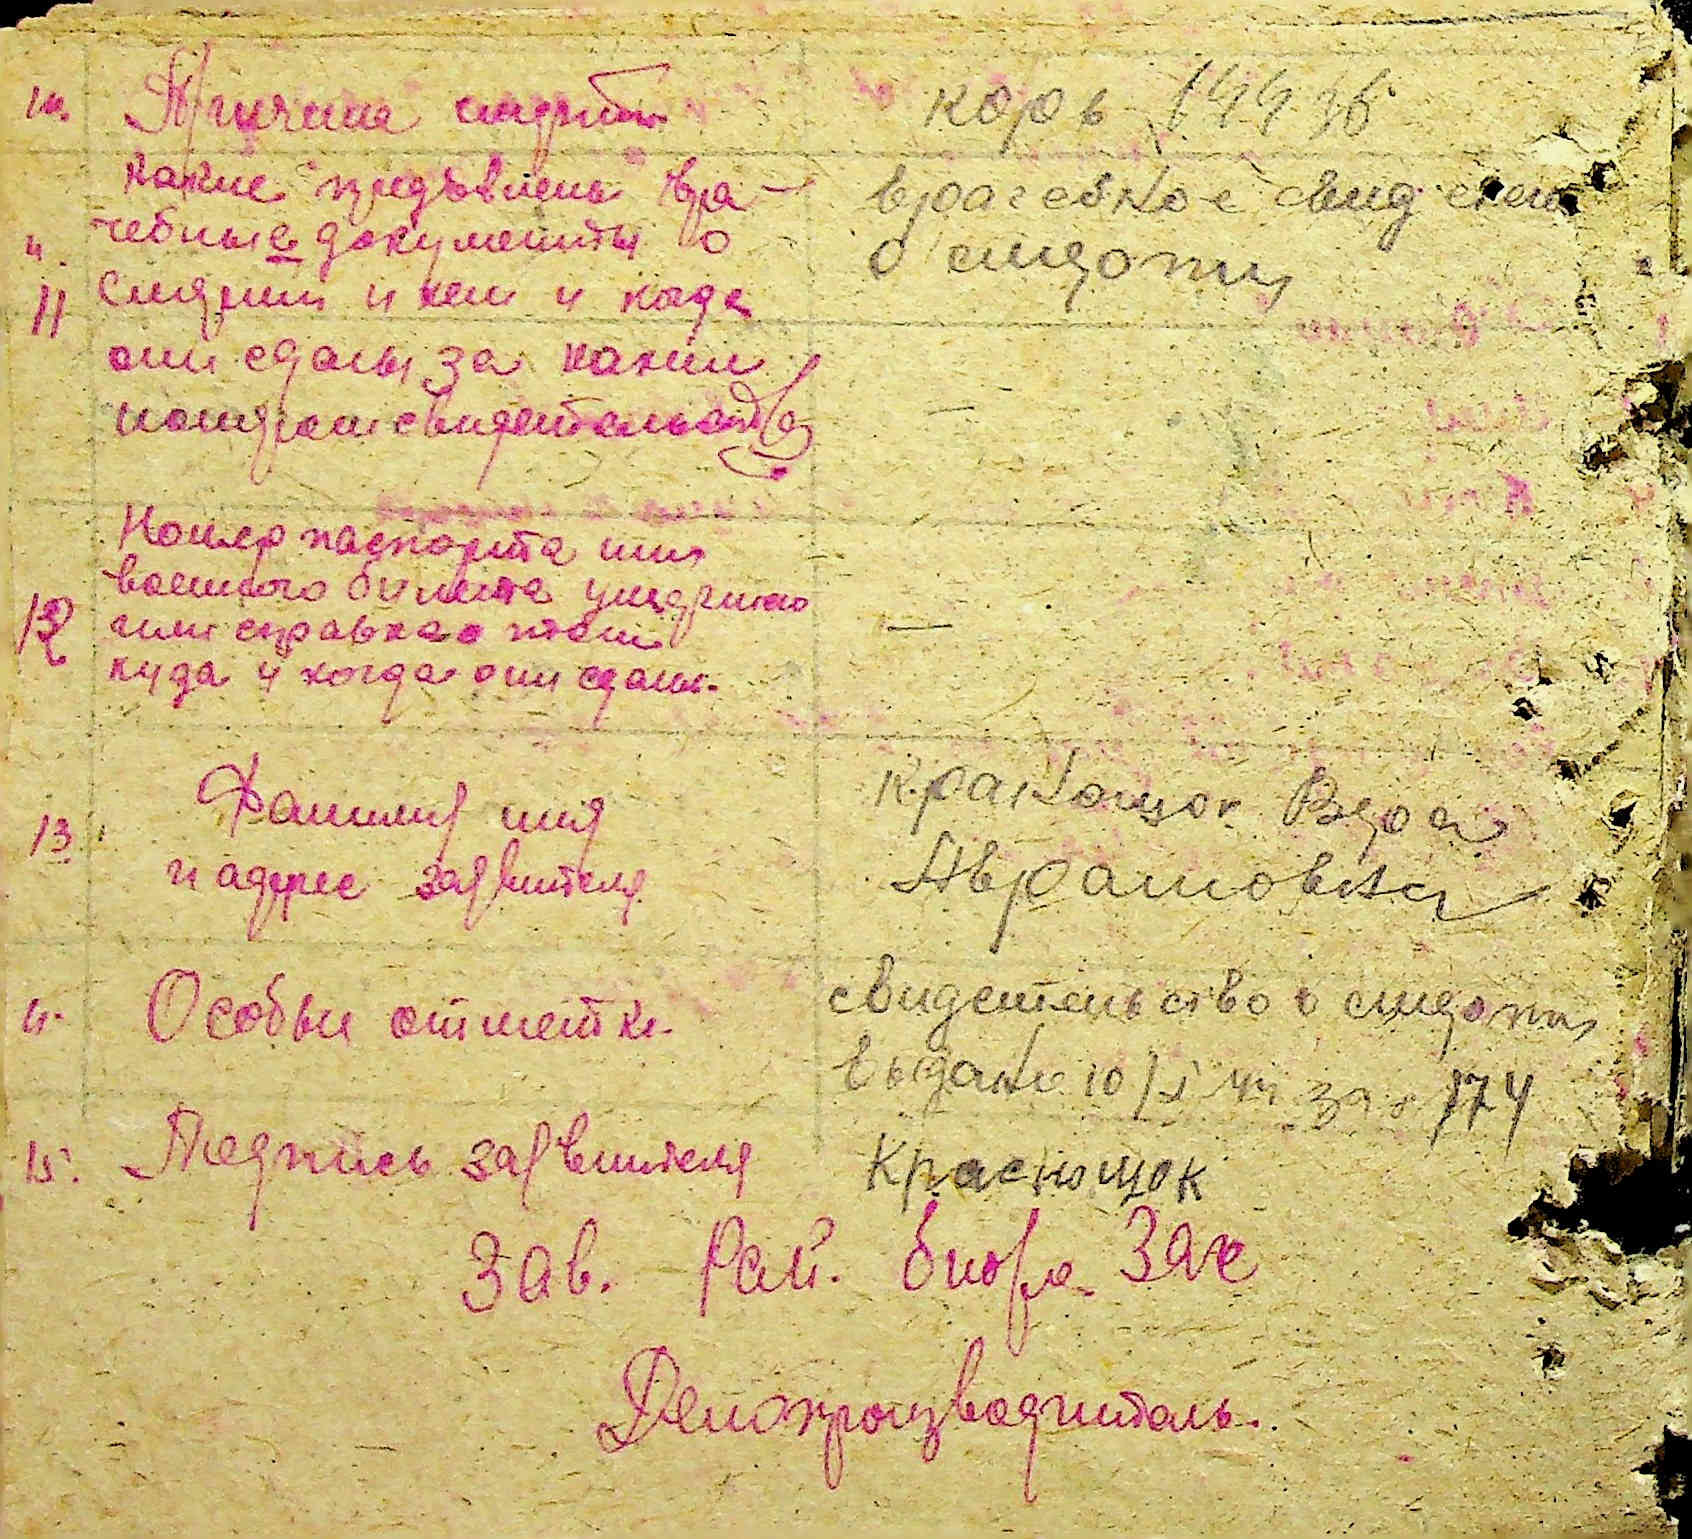 10. Причина смерти
корь
Какие предъявлены вра-
чебные документы о
11 смерти и кем и когда
они сданы за каким
номером свидетельства
врачебное свидетел
о смерти
—
Номер паспорта или
военного билета умершего
12 или справка о том
куда и когда они сданы.
—
13. Фамилия имя
и адрес заявителя
Краснощок Вера
Аврамовна
Особые отметки.
свидетельство о смерти
выдано 10/I 44 за № 174
15. Подпись заявителя
Краснощок
Зав. Рай. бюро Загс
Делопроизводитель.